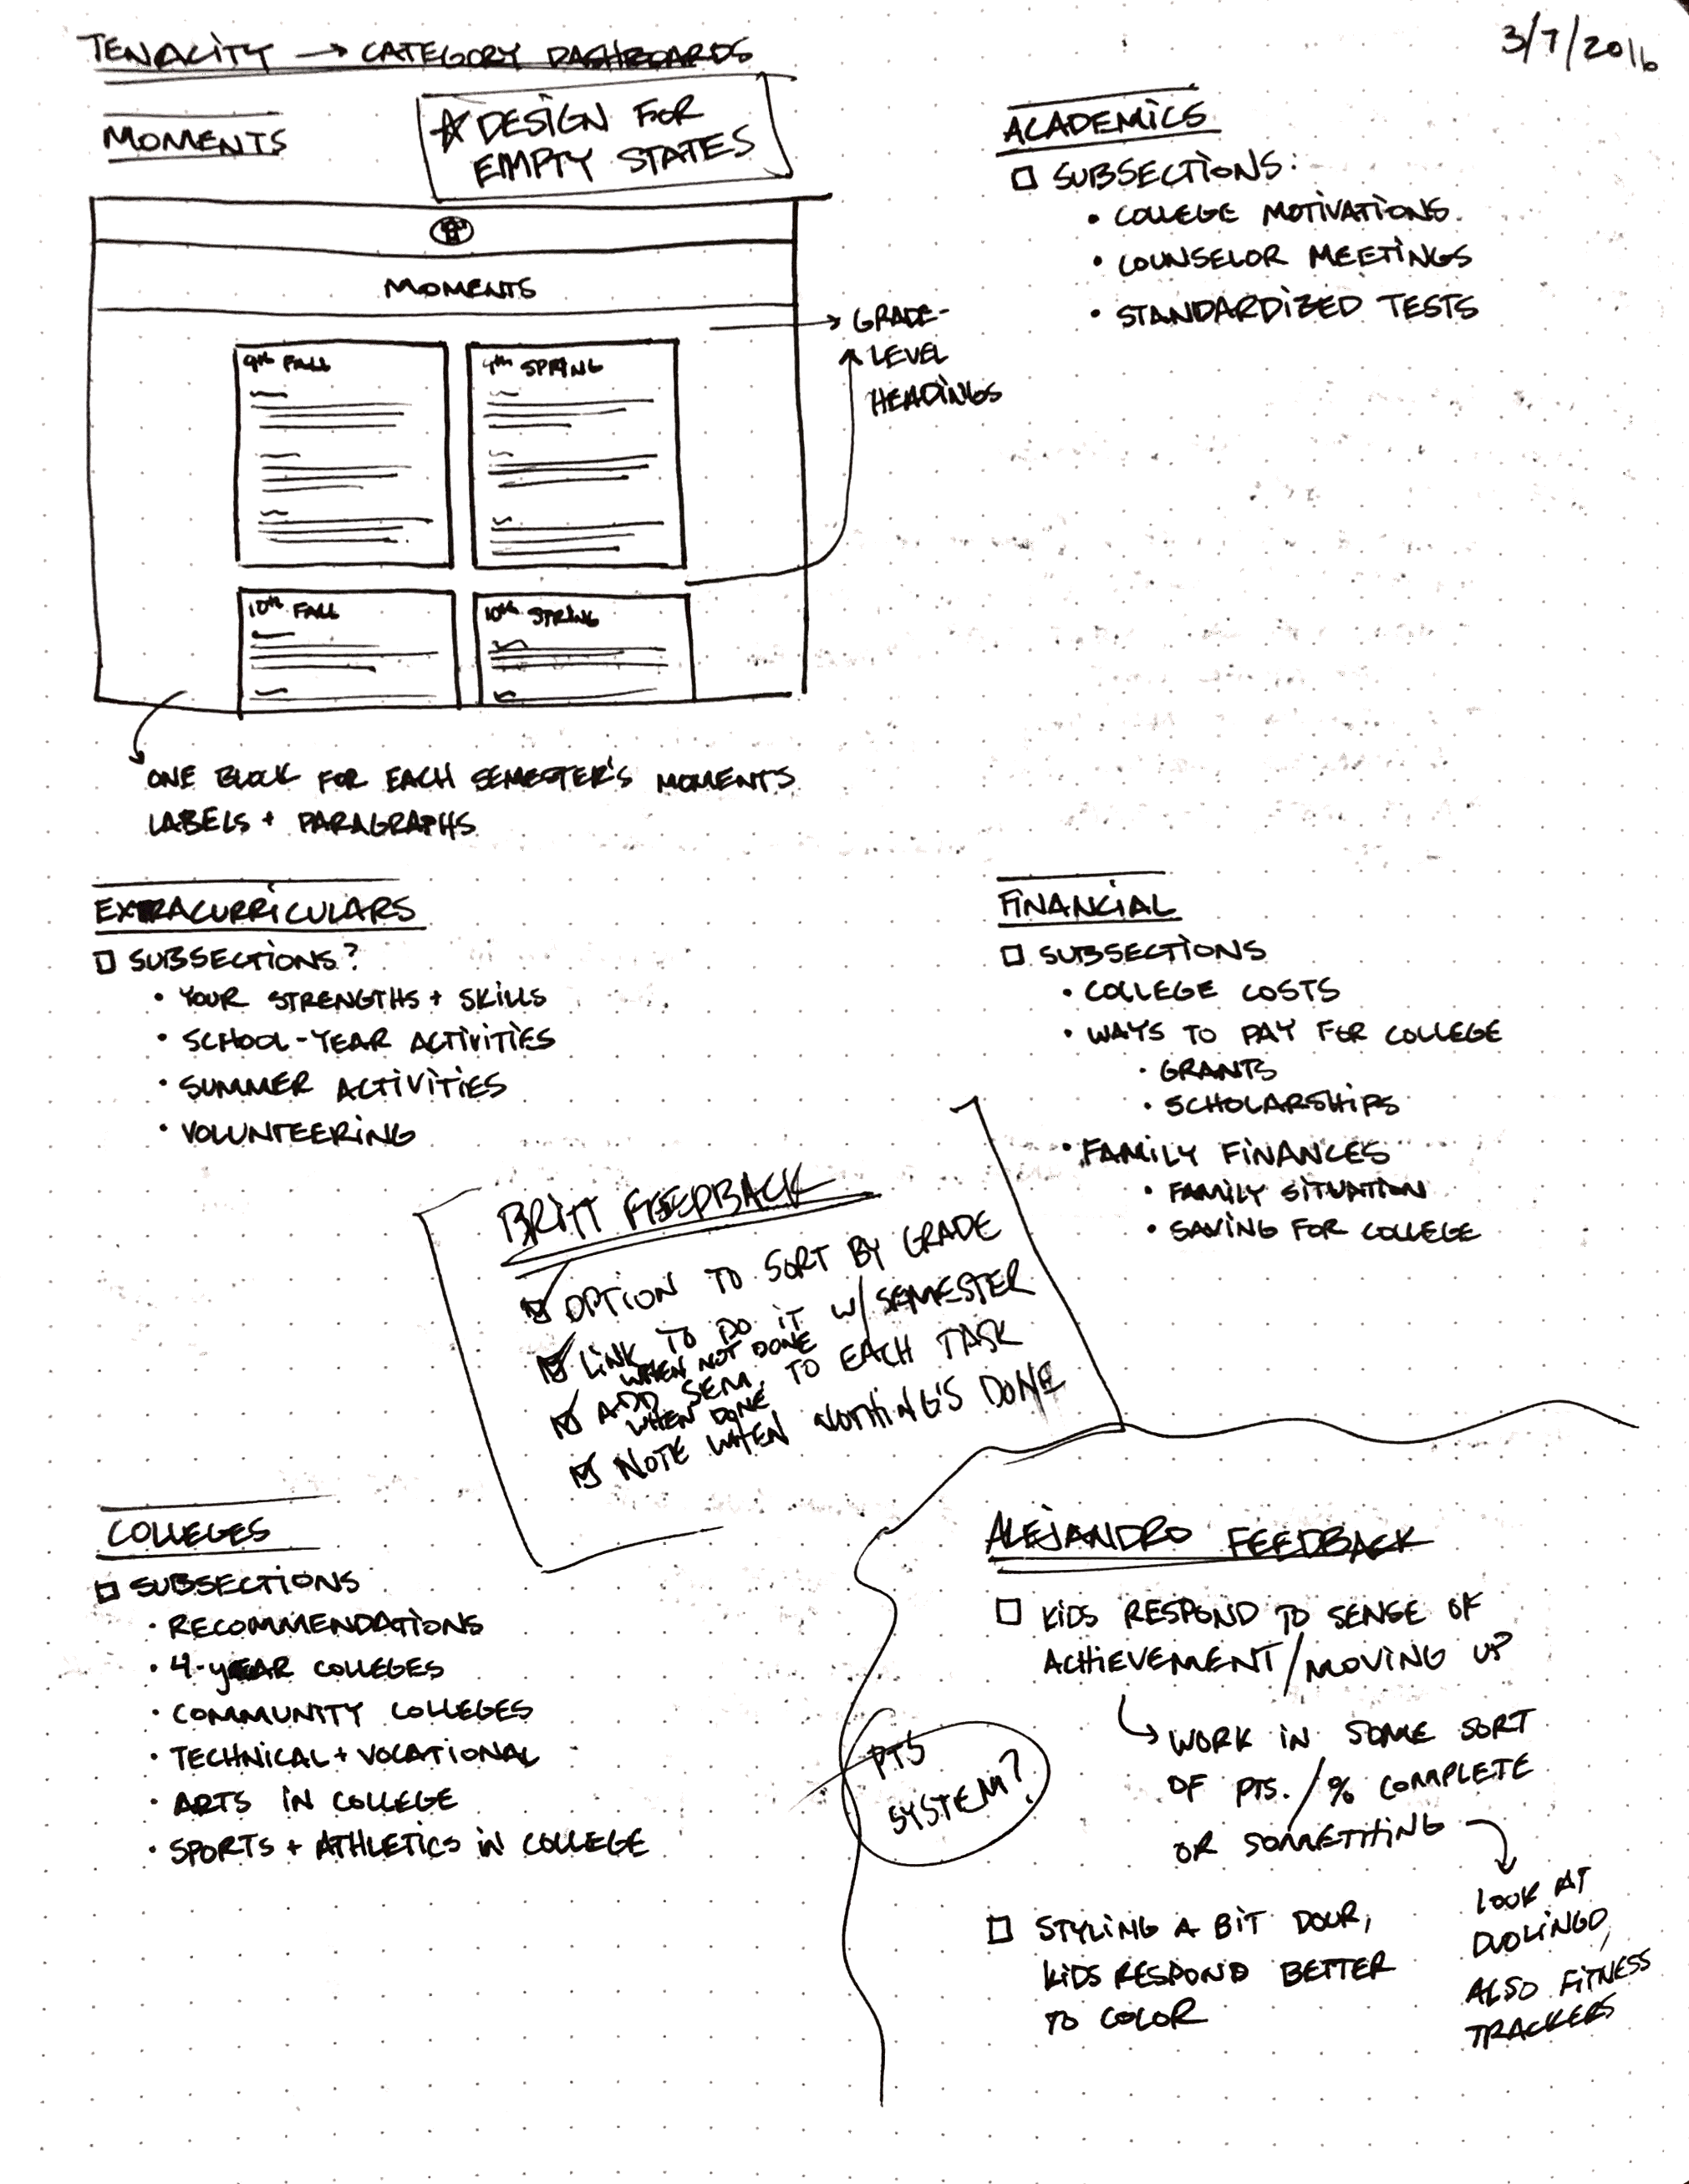 TENACITY → CATEGORY DASHBOARDS
3/7/2016
MOMENTS
☆ DESIGN FOR
EMPTY STATES
MOMENTS
9th FALL
9th SPRING
10th FALL
10th SPRING
→ GRADE-
LEVEL
HEADINGS
ONE BLOCK FOR EACH SEMESTER'S MOMENTS
LABELS + PARAGRAPHS
ACADEMICS
□ SUBSECTIONS:
• COLLEGE MOTIVATIONS
• COUNSELOR MEETINGS
• STANDARDIZED TESTS
EXTRACURRICULARS
□ SUBSECTIONS?
• YOUR STRENGTHS + SKILLS
• SCHOOL-YEAR ACTIVITIES
• SUMMER ACTIVITIES
• VOLUNTEERING
FINANCIAL
□ SUBSECTIONS
• COLLEGE COSTS
• WAYS TO PAY FOR COLLEGE
• GRANTS
• SCHOLARSHIPS
• FAMILY FINANCES
• FAMILY SITUATION
• SAVING FOR COLLEGE
BRITT FEEDBACK
☑ OPTION TO SORT BY GRADE
☑ LINK TO DO IT W/ SEMESTER
WHEN NOT DONE
☑ ADD SEM. TO EACH TASK
WHEN DONE
☑ NOTE WHEN NOTHING'S DONE
COLLEGES
□ SUBSECTIONS
• RECOMMENDATIONS
• 4-YEAR COLLEGES
• COMMUNITY COLLEGES
• TECHNICAL + VOCATIONAL
• ARTS IN COLLEGE
• SPORTS + ATHLETICS IN COLLEGE
ALEJANDRO FEEDBACK
□ KIDS RESPOND TO SENSE OF
ACHIEVEMENT/MOVING UP
↳ WORK IN SOME SORT
OF PTS./% COMPLETE
OR SOMETHING
LOOK AT
DUOLINGO,
ALSO FITNESS
TRACKERS
PTS
SYSTEM?
□ STYLING A BIT DOUR,
KIDS RESPOND BETTER
TO COLOR